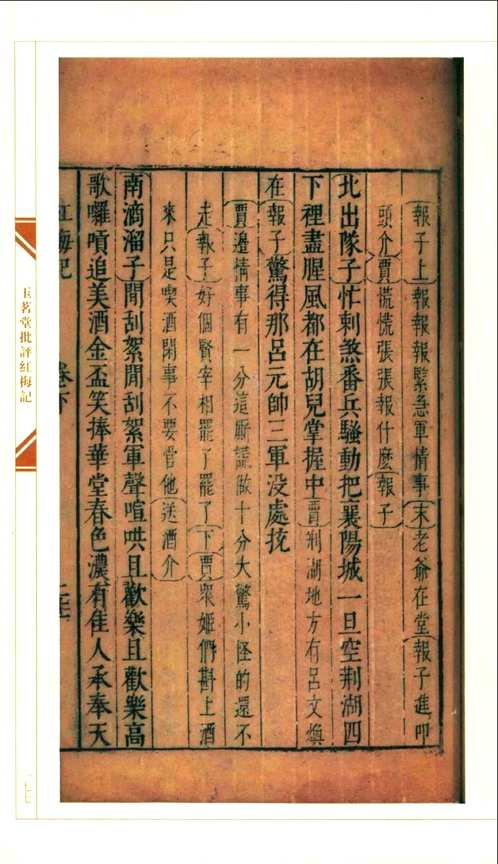 報子上報報報緊急軍情事末老爺在堂報子進叩
頭介賈慌慌張張報什麽報子
北出隊子忤剌煞番兵騷動把襄陽城一旦空荆湖四
下裡盡腥風都在胡兒掌握中賈荆湖地方有呂文煥
在報子驚得那呂元帥三軍没處挖
賈邊情事有一分這厮謊做十分大驚小怪的還不
走報子好個賢宰相罷了罷了下賈衆姬們斟上酒
來只是喫酒閑事不要管他送酒介
南滴溜子閙刮絮閙刮絮軍聲喧哄且歡樂且歡樂高
歌囉嗊追美酒金盃笑捧華堂春色濃有佳人承奉天
紅梅記 卷下
玉茗堂批評紅梅記